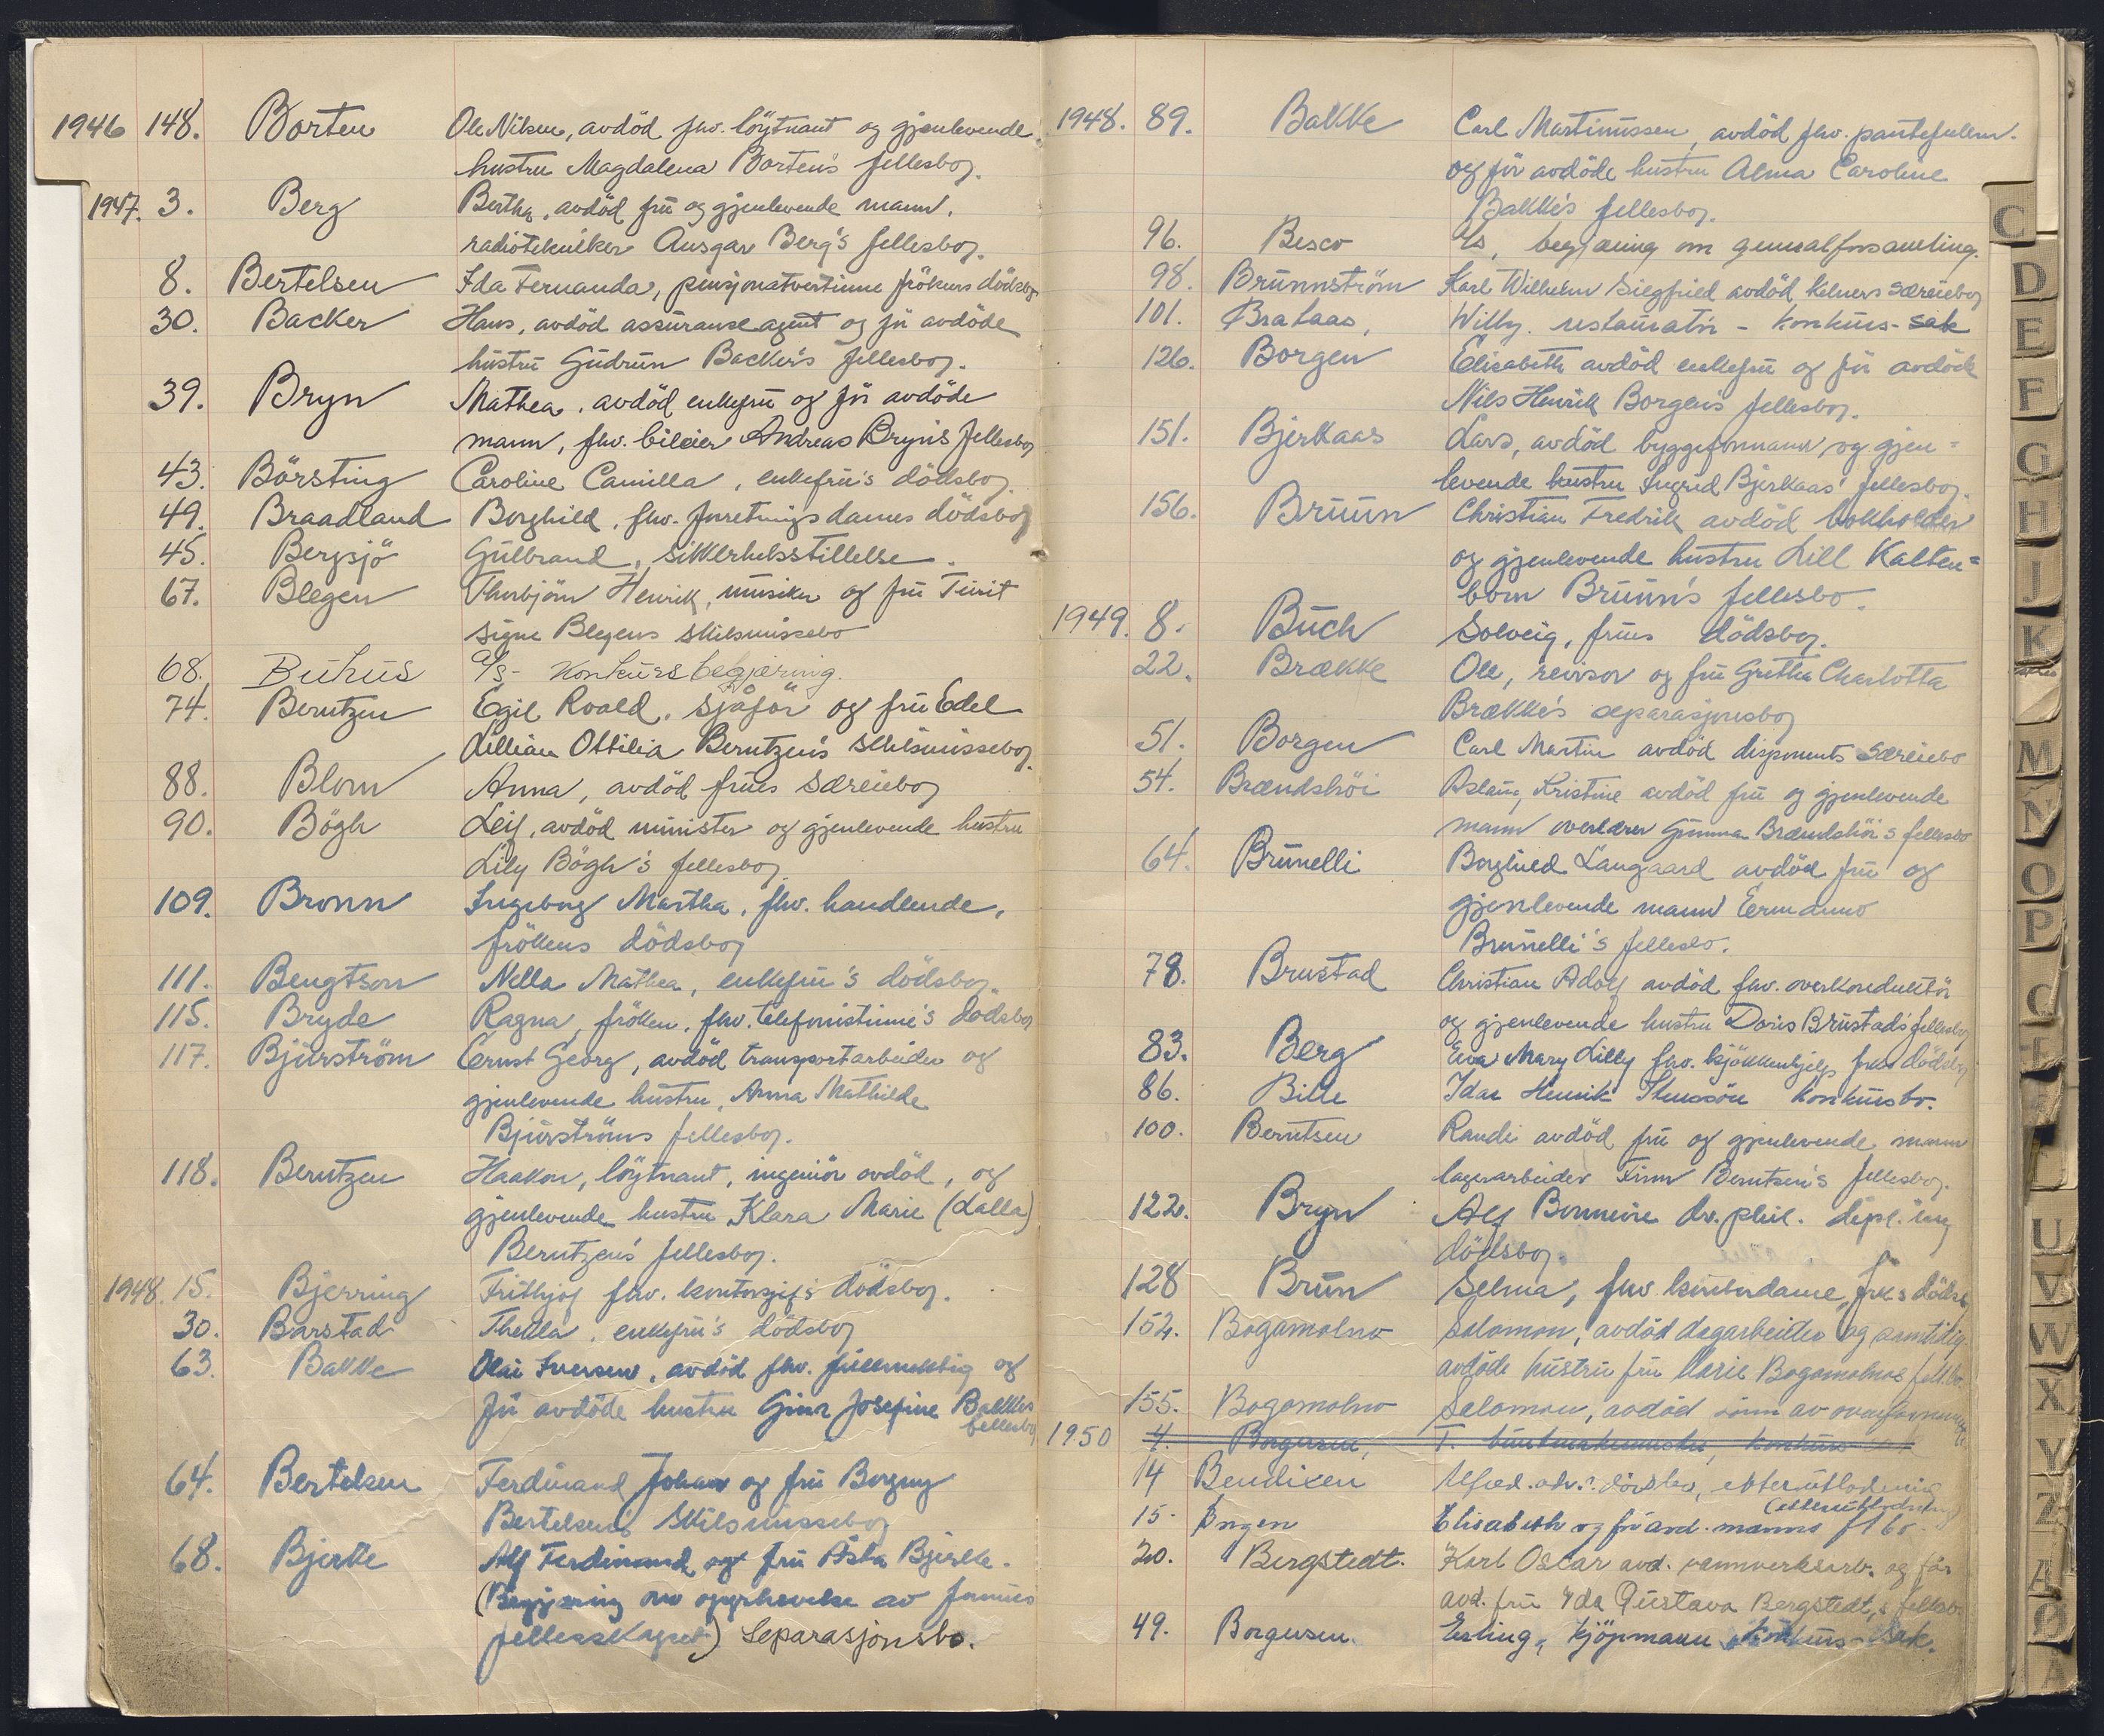 1946 148. Borten Ole Nilsen, avdöd fhv. löytnant og gjenlevende
hustru Magdalena Borten's fellesboj.
1947. 3. Berg Bertha, avdöd frü og gjenlevende mann,
radiotekniker Ansgar Berg's fellesboj.
8. Bertelsen Ida Fernanda, pensjonatvertinne frökens dödsboj
30. Backer Hans, avdöd assuranseagent og för avdöde
hustru Gudrun Backer's fellesboj.
39. Bryn Mathea, avdöd enkefrü og för avdöde
mann, fhv. bileier Andreas Bryn's fellesboj
43. Börsting Caroline Camilla, enkefrü's dödsboj.
49. Braadland Borghild, fhv. forretningsdames dödsboj
45. Bergsjö Gulbrand, sikkerhetsstillelse.
67. Blegen Thorbjörn Henrik, musiker og frü Turit
Signe Blegens skilsmissebo
68. Buhus A/S - Konkursbegjæring.
74. Berntzen Egil Roald, sjåför og frü Edel
Lillian Ottilia Berntzen's skilsmisseboj.
88. Blom Anna, avdöd frües særeieboj
90. Bögh Leif, avdöd minister og gjenlevende hustru
Lily Bögh's fellesboj
109. Bronn Ingeborg Martha, fhv. handlende,
frökens dödsboj
111. Bengtson Nella Mathea, enkefrü's dödsboj.
115. Bryde Ragna, fröken, fhv. telefonistinne's dödsboj
117. Bjurström Ernst Georg, avdöd transportarbeider og
gjenlevende hustru, Anna Mathilde
Bjurströms fellesboj.
118. Berntzen Haakon, löytnant, ingeniör avdöd, og
gjenlevende hustru Klara Marie (Lalla)
Berntzen's fellesboj.
1948. 15. Bjerring Frithjof fhv. kontorsjef's dödsboj.
30. Barstad Thekla, enkefrü's dödsboj
63. Bakke Olai Iversen, avdöd fhv. fullmektig og
för avdöde hustru Gina Josefine Bakkes
fellesboj
64. Bertelsen Ferdinand Johan og frü Borgny
Bertelsen's skilsmisseboj
68. Bjerke Alf Ferdinand og frü Åsta Bjerke.
(Begjæring om opphevelse av formues
fellesskapet) Separasjonsbo.
1948. 89. Bakke Carl Martinussen, avdöd fhv.
og för avdöde hustru Alma Caroline
Bakke's fellesboj.
96. Besco A/S, begjæring om generalforsamling.
98. Brunnström Karl Wilhelm Siegfried avdöd kelners særeieboj
101. Brataas, Willy. restauratör - konkurs-sak
126. Borgen Elisabeth avdöd enkefrü og för avdöde
Nils Henrik Borgen's fellesboj.
151. Bjerkaas Lars, avdöd byggeformann og gjen=
levende hustru Ingrid Bjerkaas' fellesboj.
156. Bruun Christian Fredrik avdöd bokholder
og gjenlevende hustru Lill Kalten=
born Bruun's fellesbo.
1949. 8. Buch Solveig, frues dödsboj.
22. Brække Ole, revisor og frü Gretha Charlotta
Brække's separasjonsboj
51. Borgen Carl Martin avdöd disponents særeiebo
54. Brændshöi Aslaug, Kristine avdöd frü og gjenlevende
mann overlærer Gunnar Brændshöi's fellesbo
64. Brunelli Borghild Langaard avdöd frü og
gjenlevende mann Ermanno
Brunelli's fellesbo.
78. Brustad Christian Adolf avdöd fhv. overkonduktör
og gjenlevende hustru Doris Brustads fellesboj
83. Berg Eva Mary Lilly fhv. kjökkenhjelp frk's dödsboj
86. Bille Idar Henrik konkursbo.
100. Berntsen Randi avdöd frü og gjenlevende mann
lagerarbeider Finn Berntsen's fellesboj.
122. Bryn Alf Bonnevie dr. phil. dipl. ing
dödsboj.
128 Brun Selma, fhv. kontordame, frk's dödsb
152. Bogomolno Salomon, avdöd lagarbeider og samtidig
avdöde hustru frü Marie Bogomolnos fell.bo.
155. Bogomolno Salomon, avdöd sönn av
1950 4. Borgersen, T. buntmakermester, konkurs
14 Bendixen Alfred. adv.s dödsbo, etterutlodning
15. Engen Elisabeth og för avd. manns f1 bo. (etterutlodning)
20. Bergstedt. Karl Oscar avd. vannverksarb. og för
avd. frü Ida Gustava Bergstedt's fellesb.
49. Borgersen. Erling, kjöpmann, Konkurs-sak.
C
D
E
F
G
H
J
K
M
N
O
P
U
V
W
X
Y
Z
Æ
Ø
Å